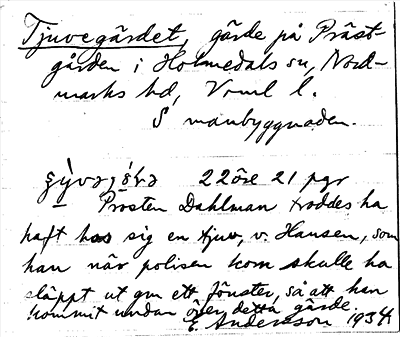 Tjuvegärdet, gärde på Präst-
gården i Holmedals sn, Nord-
marks hd, Vrml l.
S manbyggnaden.
22 öre 21 pgr
Prosten Dahlman troddes ha
haft hos sig en tjuv, v. Hansen, som
han när polisen kom skulle ha
släppt ut gm ett fönster, så att han
kommit undan över detta gärde.
E. Andersson 1934